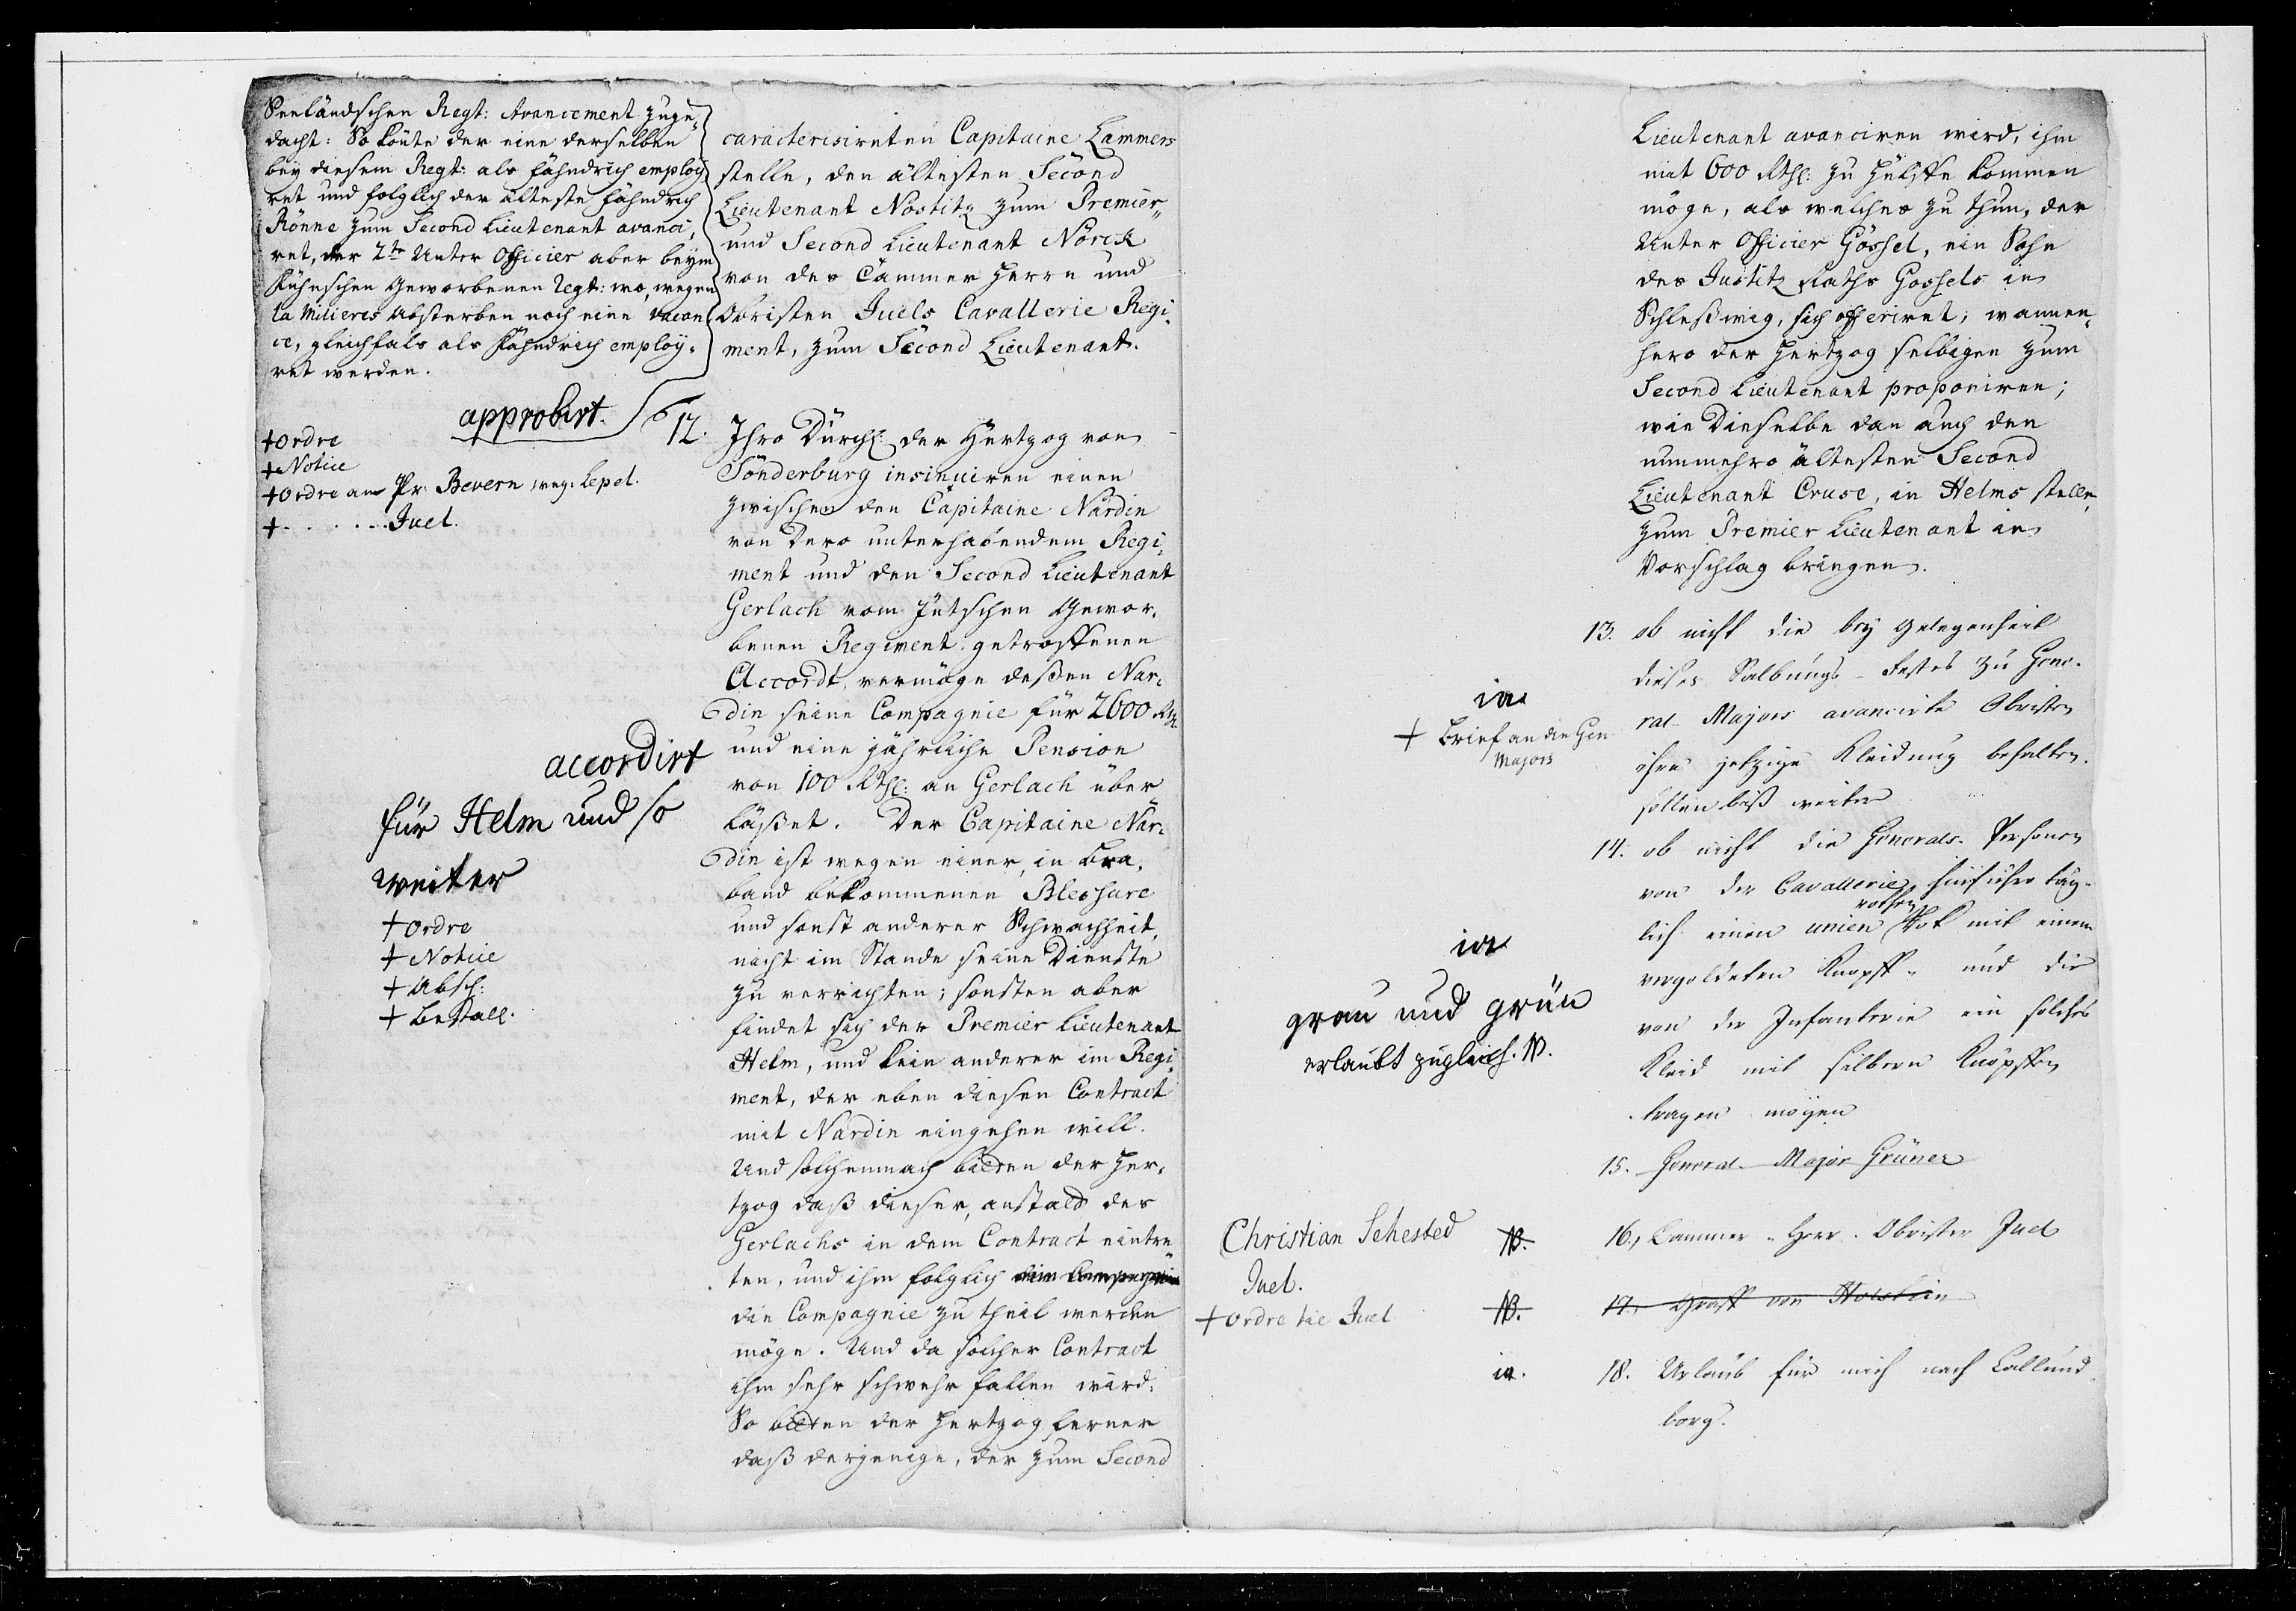 Seeländschen Regt: Avancement zuge„
dacht: So könte der eine derselben
bey diesem Regt: als Fähndrich employ„
ret und folglich der älteste Fähndrich
Rönne zum Second Lieutenant avanci„
ret, der 2te Unter Officier aber beym
Fühnschen Geworbenen Regt: wo, wegen
la Milieres Absterben noch eine vacan
ce, gleichfals als Fähndrich employ„
ret werden.
approbirt.
+ Ordre
+ Notice
+ Ordre an Pr. Bevern weg. Lepel.
+ . . . . . . . Juel.
accordirt
für Helm und so
weiter
+ Ordre
+ Notice
+ Absch:
+ Bestall.
caracterisirten Capitaine Lammers
stelle, den ältesten Second
Lieutenant Nostitz zum Premier„
und Second Lieutenant Nörck
von des Cammer Herrn und
Obristen Juels Cavallerie Regi„
ment, zum Second Lieutenant.
12. Ihro Durchl: der Hertzog von
Sonderburg insinuiren einen
zwischen den Capitaine Nardin
von Dero unterhabendem Regi„
ment und den Second Lieutenant
Gerlach vom Jütschen Gewor„
benen Regiment getroffenen
Accordt, vermöge deßen Nar„
din seine Compagnie für 2600 Rthl:
und eine jährliche Pension
von 100 Rthl: an Gerlach über
läßet. Der Capitaine Nar„
din ist wegen einer, in Bra„
band bekommenen Blessure
und sonst anderer Schwachheit,
nicht im Stande seine Dienste
zu verrichten; sonsten aber
findet sich der Premier Lieutenant
Helm, und kein anderer im Regi„
ment, der eben diesen Contract
mit Nardin eingehen will.
Und solchemnach bitten der Her„
tzog daß dieser, anstatt des
Gerlachs in dem Contract eintre
ten, und ihm folglich die Compagnie
die Compagnie zu theil werden
möge. Und da solcher Contract
ihm sehr schwehr fallen wird;
So bitten der Hertzog ferner
daß derjenige, der zum Second
Lieutenant avanciren wird, ihm
mit 600 Rthl: zu Hülffe kommen
möge, als welches zu thun, der
Unter Officier Gössel, ein Sohn
des Justitz Raths Gossels in
Schleßwig, sich offeriret; wannen„
hero der Hertzog selbigen zum
Second Lieutenant proponiren;
wie Dieselbe dan auch den
nunmehro ältesten Second
Lieutenant Cruse, in Helms stelle,
zum Premier Lieutenant in
Vorschlag bringen.
13. ob nicht die bey Gelegenheit
dieses Salbungs-Festes zu Gene-
ral-Majors avancirte Obristen
ihre jetzige Kleidung behalten
sollen biß weiter
ia
+ Brief an die Gen
Majors
14. ob nicht die Generals-Persohnen
von der Cavallerie, hinführo täg-
lich einen unien rothen Rok mit einem
vergoldeten Knopff- und die
von der Infanterie ein solches
Kleid mit silbern Knöpffen
tragen mögen
ia
grau und grün
erlaubt zugleich. NB.
15. General-Major Grüner
16., Cammer-Herr. Obrister Juel
NB.
Christian Sehested
Juel.
+ Ordre tie Juel
NB.
17., Graff von Holstein
ia.
18. Urlaub für mich nach Callund
borg.